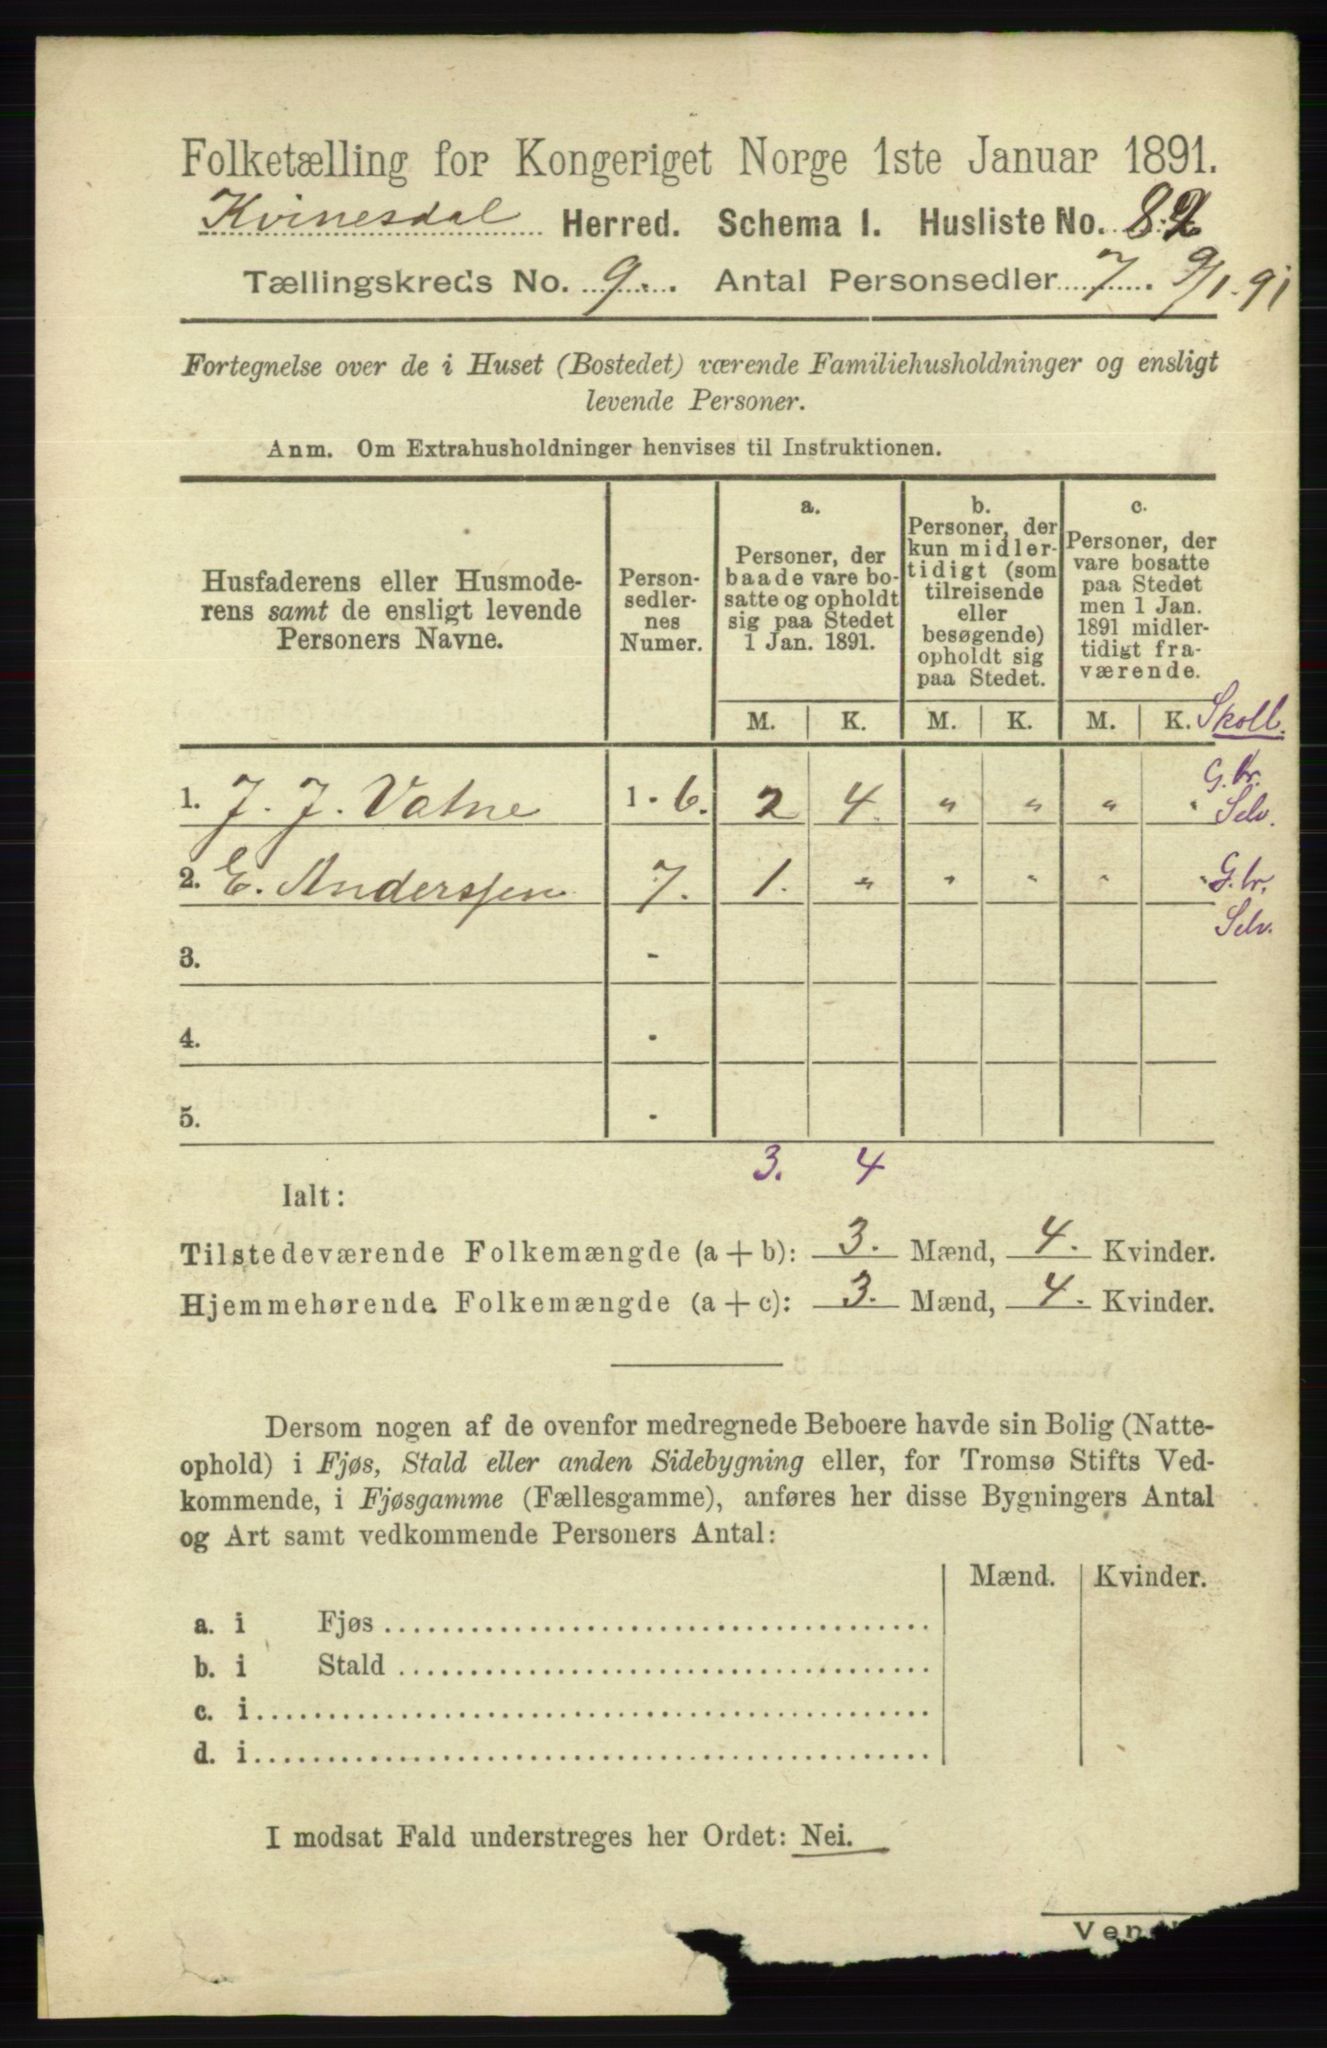 Folketælling for Kongeriget Norge 1ste Januar 1891.
Kvinesdal Herred. Schema I. Husliste No. 82
Tællingskreds No. 9. Antal Personsedler 7. 9/1. 91
Fortegnelse over de i Huset (Bostedet) værende Familiehusholdninger og ensligt
levende Personer.
Anm. Om Extrahusholdninger henvises til Instruktionen.
Husfaderens eller Husmode-
rens samt de ensligt levende
Personers Navne.
Person-
sedler-
nes
Numer.
a.
Personer, der
baade vare bo-
satte og opholdt
sig paa Stedet
1 Jan. 1891.
b.
Personer, der
kun midler-
tidigt (som
tilreisende
eller
besøgende)
opholdt sig
paa Stedet.
c.
Personer, der
vare bosatte
paa Stedet
men 1 Jan.
1891 midler-
tidigt fra-
værende.
M. K. M. K. M. K. Skoll.
1. J. J. Vatne 1 - 6. 2 4. " " " " G.br. Selv.
2. E. Anderssen 7. 1. " " " " " G.br. Selv.
3. -
4. -
5. -
3. 4
Ialt:
Tilstedeværende Folkemængde (a + b): 3. Mænd, 4. Kvinder.
Hjemmehørende Folkemængde (a + c): 3. Mænd, 4. Kvinder.
Dersom nogen af de ovenfor medregnede Beboere havde sin Bolig (Natte-
ophold) i Fjøs, Stald eller anden Sidebygning eller, for Tromsø Stifts Ved-
kommende, i Fjøsgamme (Fællesgamme), anføres her disse Bygningers Antal
og Art samt vedkommende Personers Antal:
Mænd. Kvinder.
a. i Fjøs
b. i Stald
c. i
d. i
I modsat Fald understreges her Ordet: Nei.